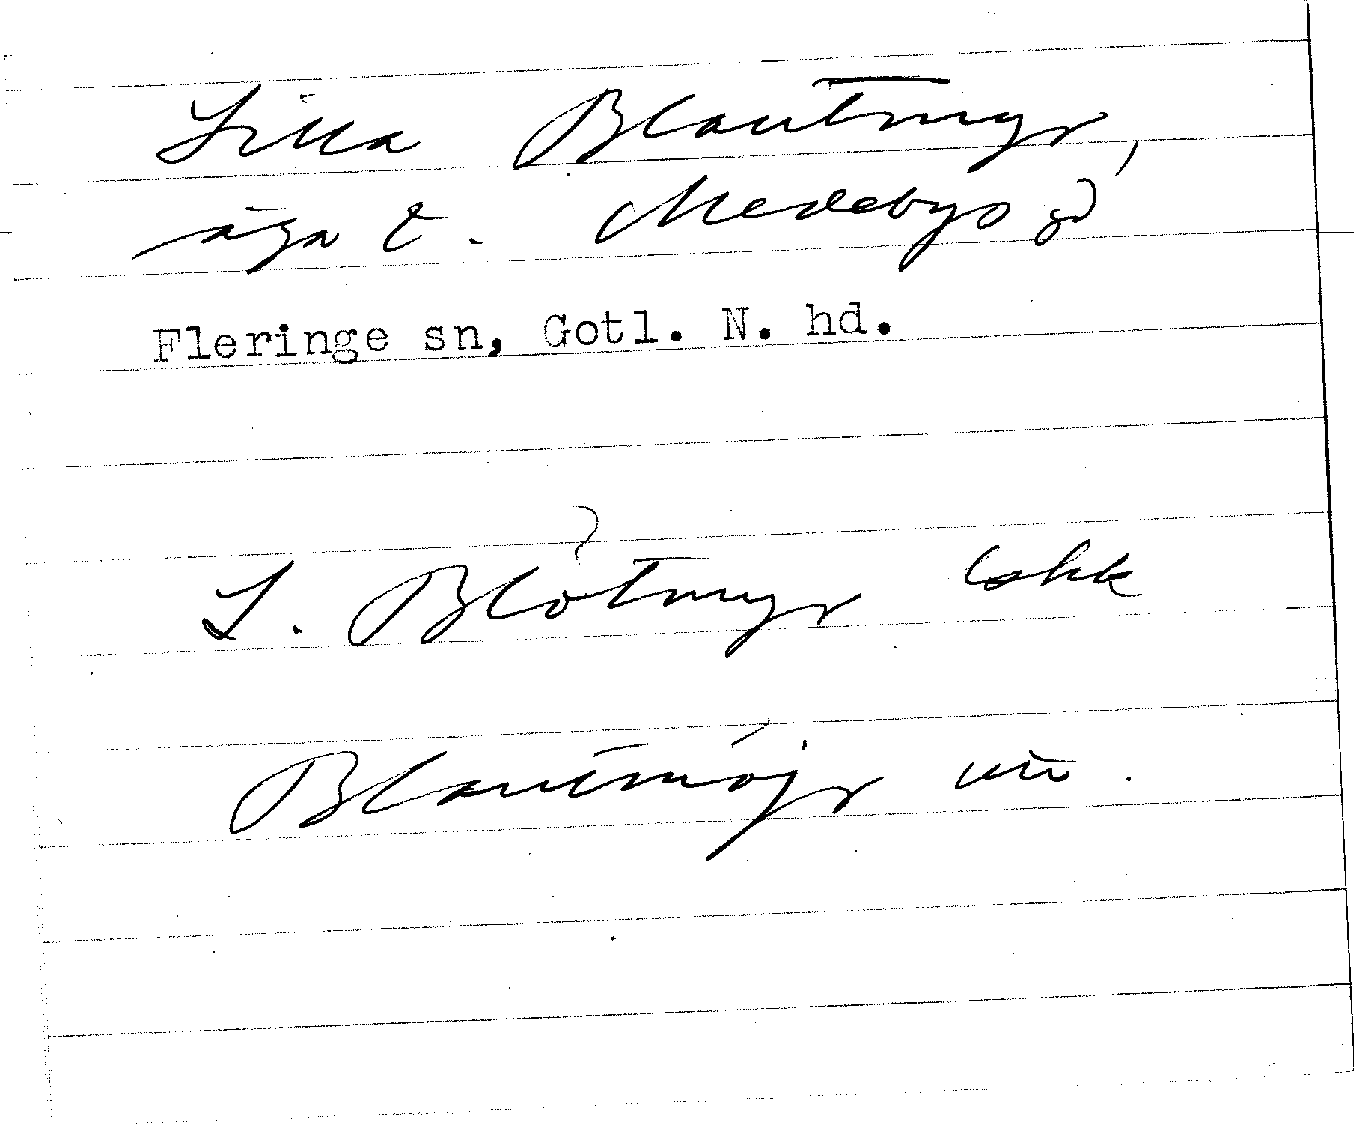 Lilla Blautmyr,
äga t. Medebys gd
Fleringe sn, Gotl. N. hd.
L. Blötmyr
Blautmöjr